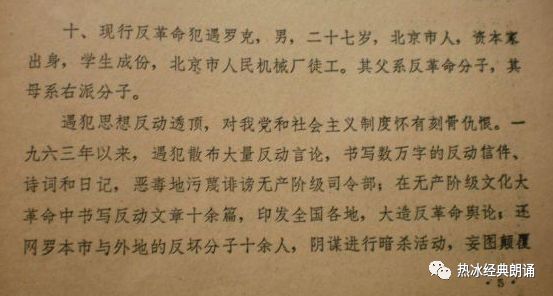 十、现行反革命犯遇罗克，男，二十七岁，北京市人，资本家
出身，学生成份，北京市人民机械厂徒工。其父系反革命分子，其
母系右派分子。
遇犯思想反动透顶，对我党和社会主义制度怀有刻骨仇恨。一
九六三年以来，遇犯散布大量反动言论，书写数万字的反动信件、
诗词和日记，恶毒地污蔑诽谤无产阶级司令部；在无产阶级文化大
革命中书写反动文章十余篇，印发全国各地，大造反革命舆论；还
网罗本市与外地的反坏分子十余人，阴谋进行暗杀活动，妄图颠覆
热冰经典朗诵
·5·